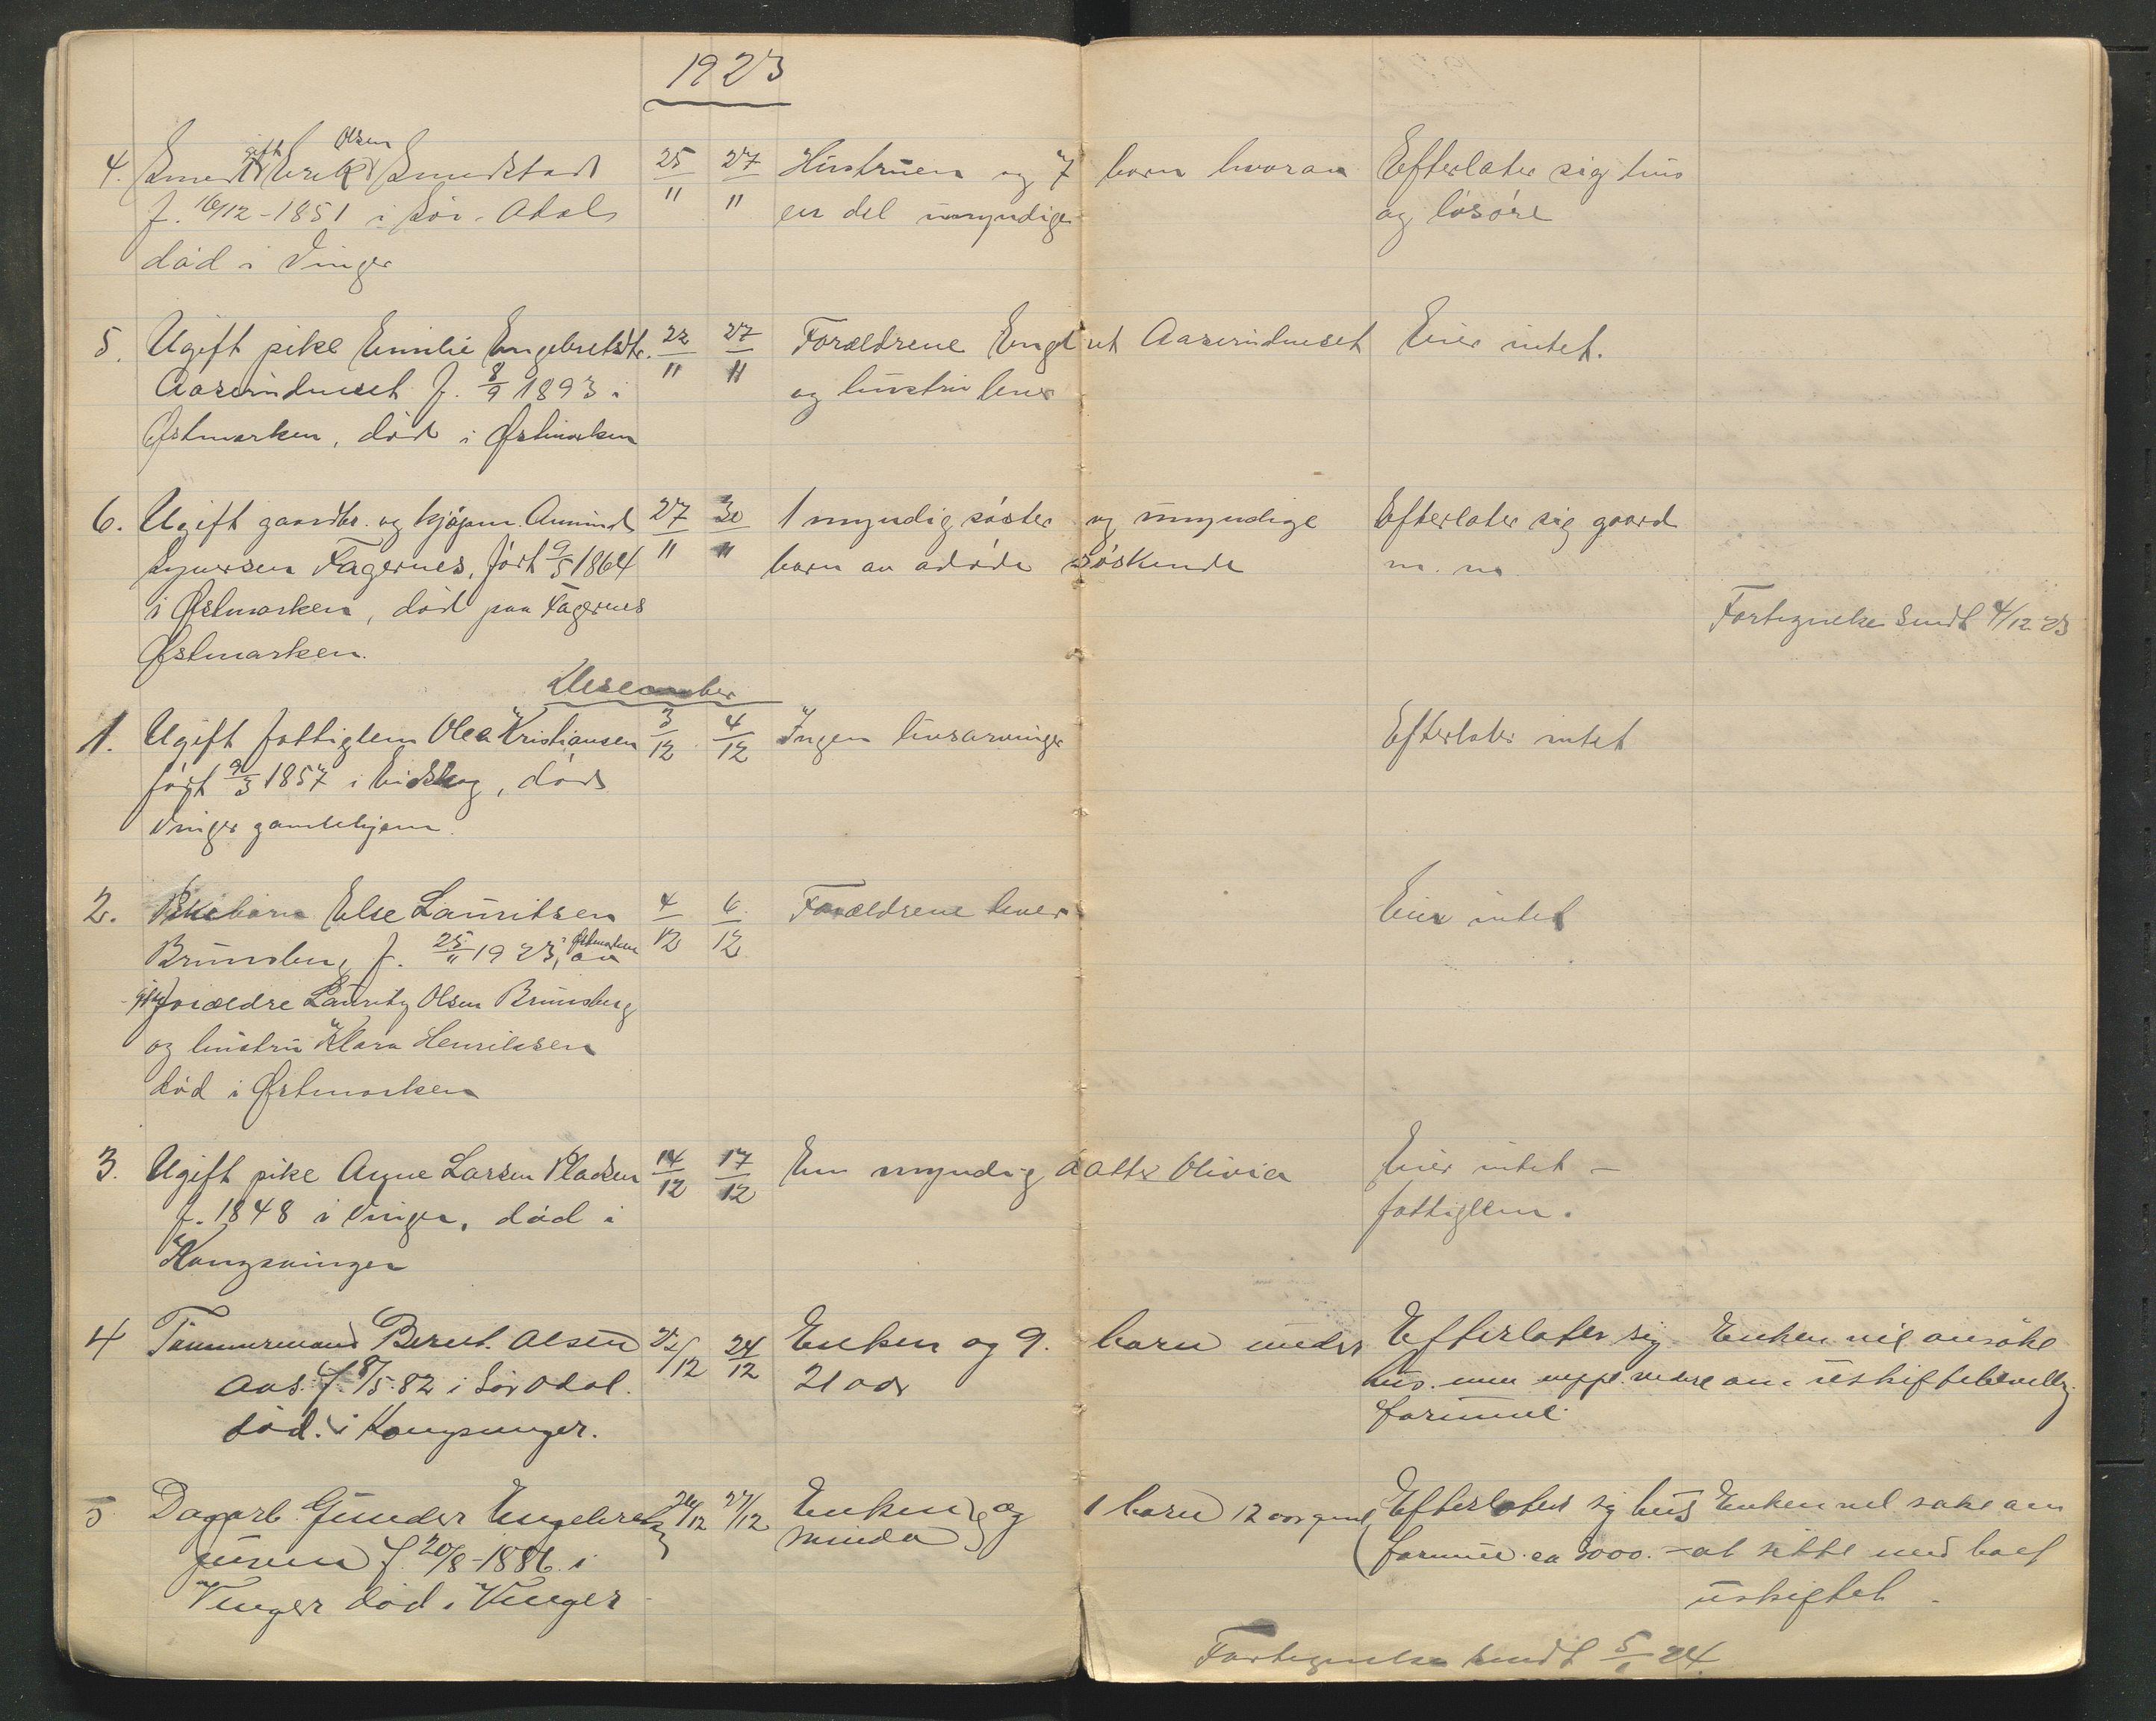 1923
4. Smed gift Erik Olsen Smedstad 25/11 27/11 Hustruen og 7 barn hvorav Efterlater sig hus
f. 16/12-1851 i Sør-Odal en del umyndige og løsøre
død i Vinger
5. Ugift pike Emilie Engebretsdtr. 22/11 27/11 Forældrene Engebret Aaserudneset Eier intet.
Aaserudneset f. 8/9 1893 i og hustru lever
Østmarken, død i Østmarken
6. Ugift gaardbr. og kjøpm. Amund 27/11 30/11 1 myndig søster og umyndige Efterlater sig gaard
Syversen Fagernes, født 9/5 1864 barn av avdøde søskende m. m.
i Østmarken, død paa Fagernes Fortegnelse sendt 4/12 23
Østmarken.
Desember
1. Ugift fattiglem Olea Kristiansen 3/12 4/12 Ingen livsarvinger Efterlater intet
født 9/3 1857 i Eidskog, død
Vinger gamlehjem.
2. Pikebarn Else Lauritsen 4/12 6/12 Forældrene lever Eier intet
Brunsberg f. 25/11 1923 i Østmarken, av
gifte forældre Lauritz Olsen Brunsberg
og hustru Klara Henriksen
død i Østmarken
3. Ugift pike Anne Larsen Pladsen 14/12 17/12 En myndig datter Olivia Eier intet -
f. 1848 i Vinger, død i fattiglem.
Kongsvinger
4 Tømmermand Bernt Olsen 22/12 24/12 Enken og 9. barn under Efterlater sig Enken vil ansøke
Aas. f. 8/5 82 i Sør Odal. 21 aar hus. men neppe videre om uskiftebevilling
død. i Kongsvinger. formue.
5 Dagarb. Gunder Engebretsen 26/12 27/12 Enken og 1 barn 12 aar gml. Efterlater sig hus Enken vil søke om
f. 20/8-1886 i Minda formue ca 3000.- at sitte med boet
Vinger død i Vinger uskiftet.
Fortegnelse sendt 5/1 24.